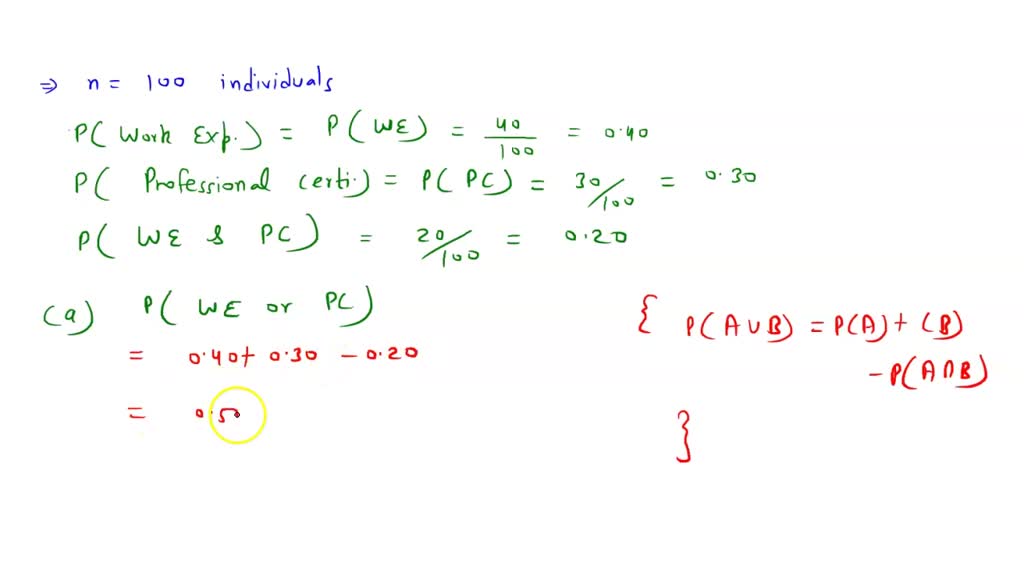 ⇒ n = 100 individuals
P( Work Exp.) = P( WE) = 40/100 = 0.40
P( Professional Certi.) = P( PC) = 30/100 = 0.30
P( WE & PC) = 20/100 = 0.20
(a) P( WE or PC)
= 0.40+ 0.30 - 0.20
= 0.5
{ P(A∪B) = P(A) + (B)
- P(A∩B)
}